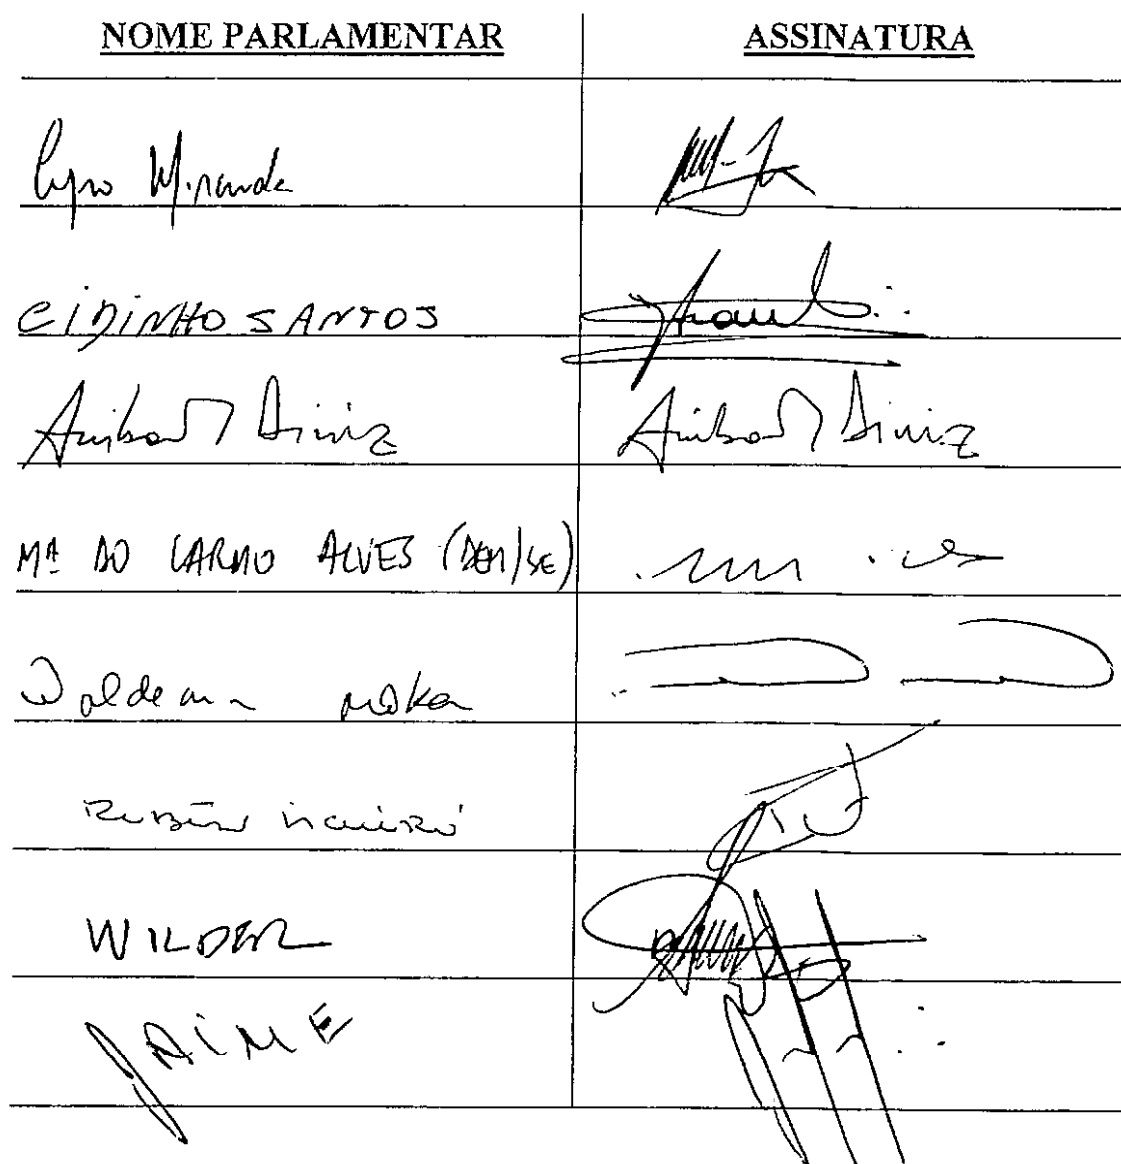 NOME PARLAMENTAR ASSINATURA
Cyro Miranda
CIDINHO SANTOS
Anibal Diniz Anibal Diniz
Mª DO CARMO ALVES (DEM/SE)
Waldemir Moka
Ruben Figueiró
WILDER
JAIME